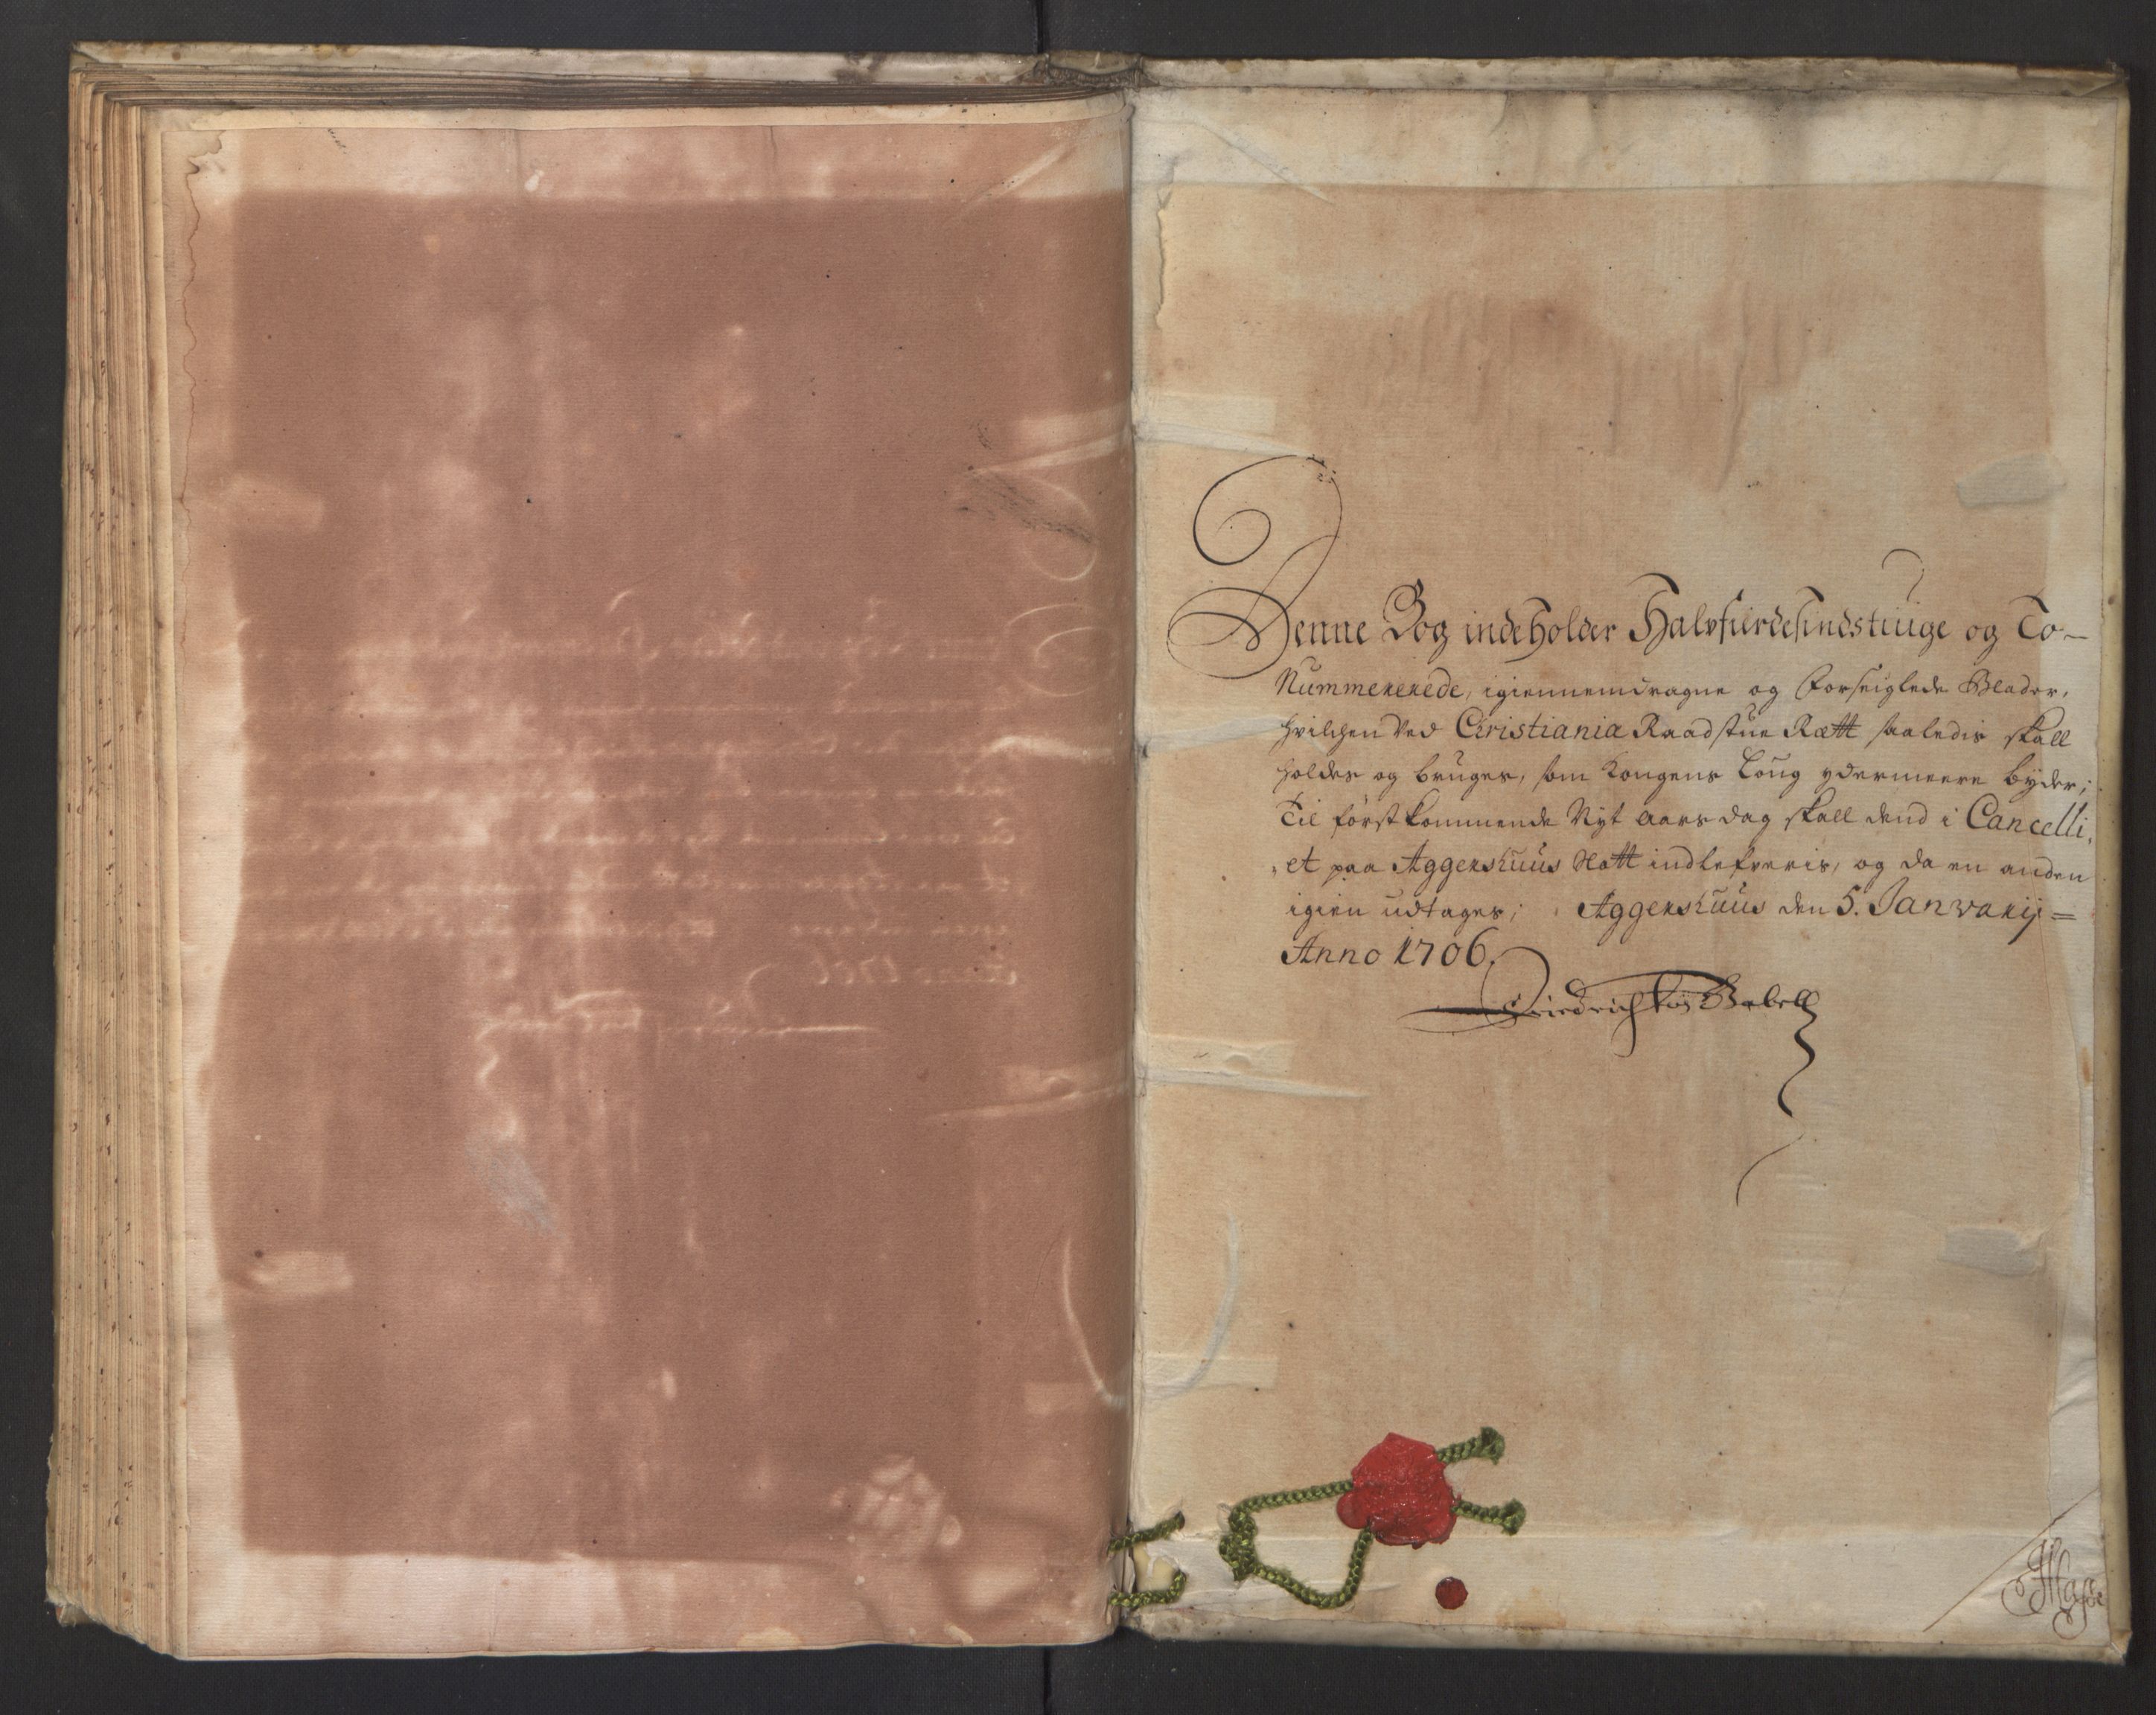 Denne Bog indeholder Halvfierdesindstiuge og To-
Nummererede, igiennemdragne og forseiglede Blader,
hvilchen Ved Christiania Raadstue Rætt saaledis skall
holdes og bruges, som Kongens Loug ydermeere byder;
Til først kommende Nyt Aars dag skall dend i Cancelli,
et paa Aggershuus Slott indlefveris, og da en anden
igien udtages; Aggershuus den 5. Janvarij =
Anno 1706.
Friedrich Gabell